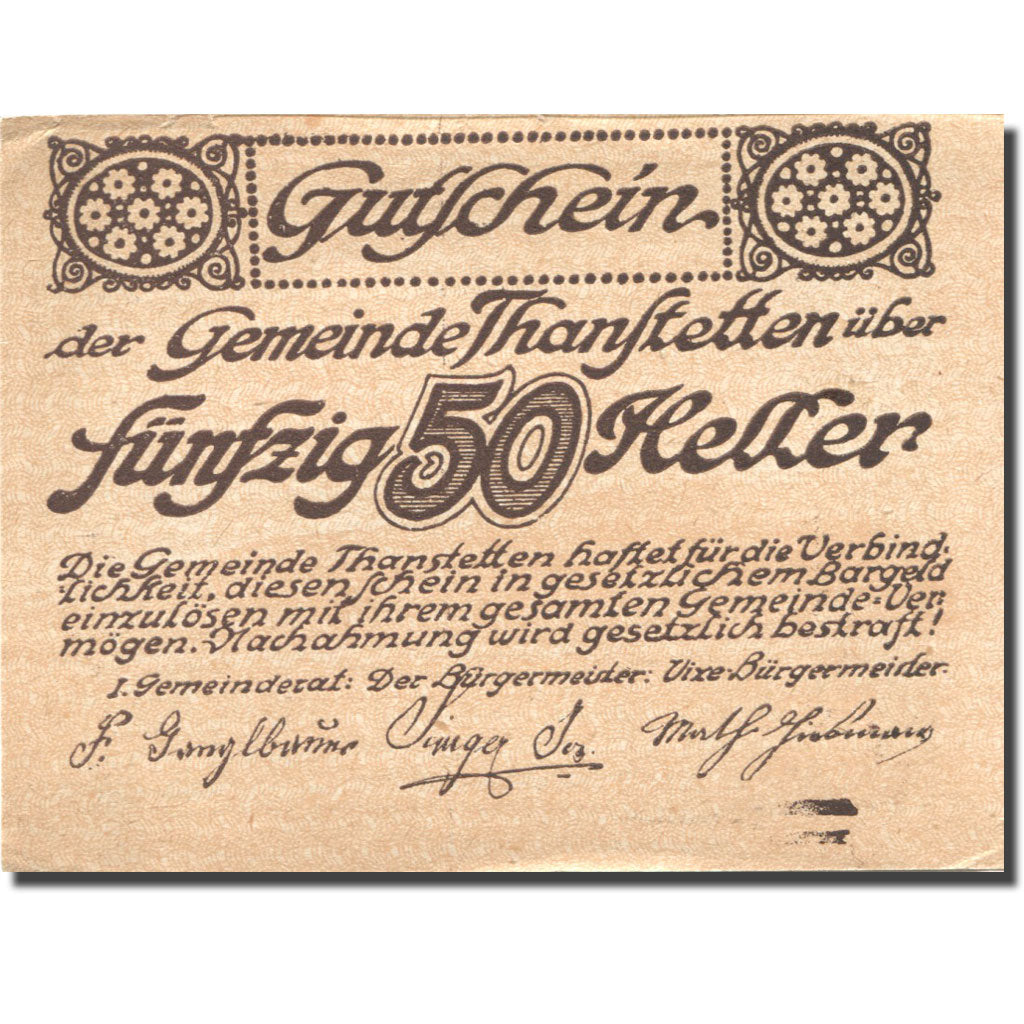 Gutschein
der Gemeinde Thanstetten über
fünfzig 50 Heller
Die Gemeinde Thanstetten haftet für die Verbind-
lichkeit, diesen Schein in gesetzlichem Bargeld
einzulösen mit ihrem gesamten Gemeinde-Ver-
mögen. Nachahmung wird gesetzlich bestraft!
I. Gemeinderat: Der Bürgermeister: Vize-Bürgermeister.
F. Ganglbauer Math